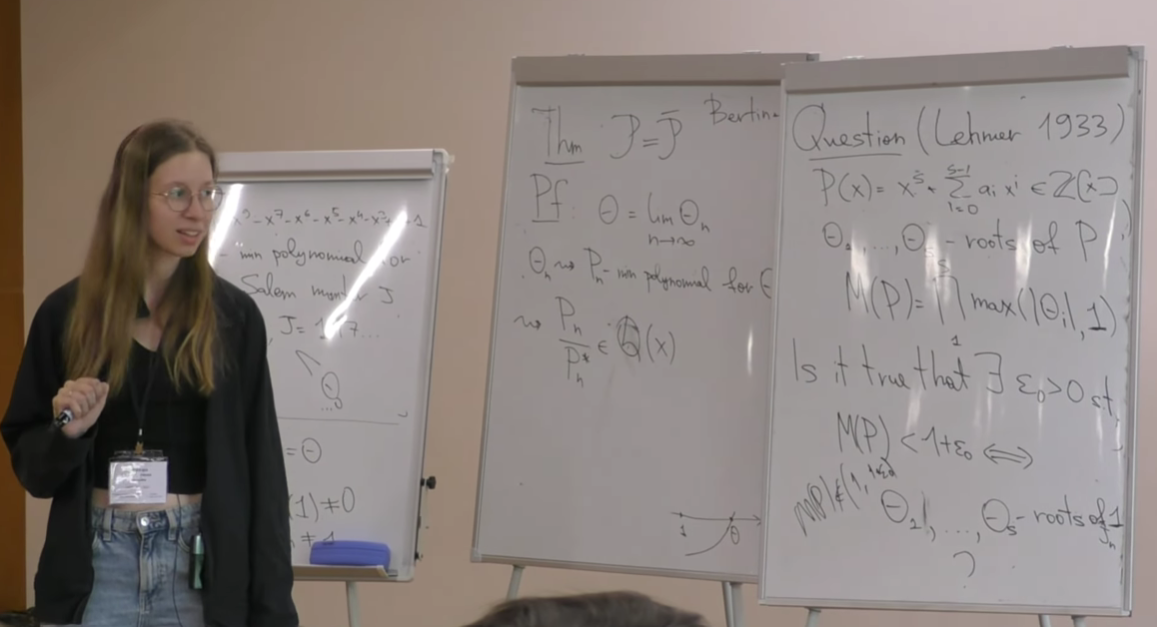 - min polynomial for
Salem number J
J = 1,17...
Θ₀
= Θ
(1) ≠ 0
≠ 1
Thm J = J̄
Pf: Θ = lim Θₙ
n→∞
Θₙ ⇝ Pₙ - min polynomial for Θ
⇝ Pₙ/Pₙ* ∈ Q(x)
1 Θ
Question (Lehmer 1933)
P(x) = xˢ + Σ aᵢ xⁱ ∈ Z[x]
s-1
i=0
Θ₁, ..., Θₛ - roots of P
M(P) = ∏ max(|Θᵢ|, 1)
s
1
Is it true that ∃ ε₀ > 0 st.
M(P) < 1+ε₀ ⟺
M(P) ∉ (1, 1+ε₀)
Θ₁, ..., Θₛ - roots of 1
?